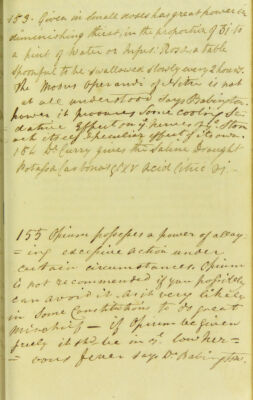 153. Given in small doses has great power in
diminishing thirst, in the proportion of ʒi to
a pint of water or Infus: Rosæ a table
spoonful to be swallowed slowly every 2 hours.
The Modus Operandi of Nitre is not
at all understood says Babington.
power it procures some cooling Se-
dative Effect on ye. nerves of ye. Stom
ach itself. peculiar effect of its own.
154 Dr. Curry gives the Saline Draught
Potassa Carbonas gr. XV Acid Citric
155 Opium possesses a power of allay
-ing excessive action under
certain circumstances. Opium
is not recommended if you possibly
can avoid it. as it very likely
in some Constitutions to do great
Mischief — if Opium be given
freely it shd. be in ye. low ner=
= vous fever says Dr. Babington.